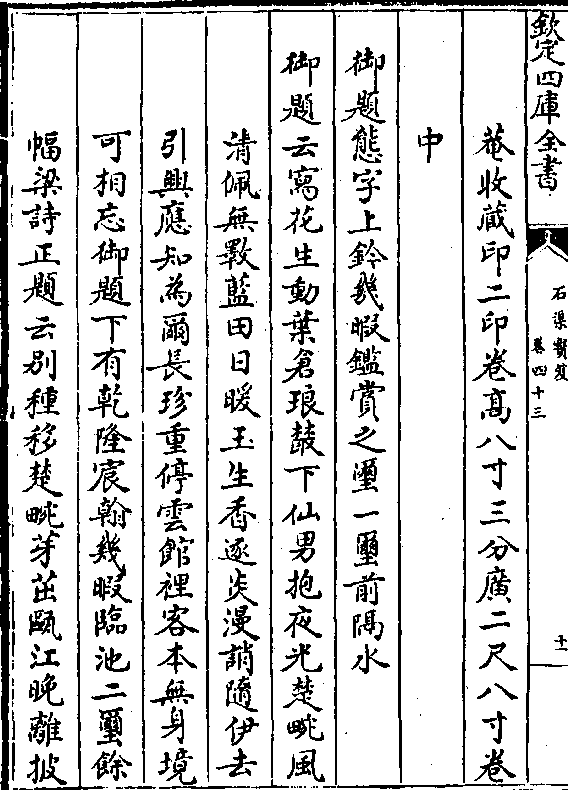 欽定四庫全書
石渠寶笈
卷四十三
十一
菴收藏印二印卷髙八寸三分廣二尺八寸卷
中
御題態字上鈐幾暇鑑賞之璽一璽前隔水
御題云寫花生動葉倉琅鼓下仙男抱夜光楚畹風
清佩無斁藍田日暖玉生香逐炎漫誚隨伊去
引興應知為爾長珍重停雲館裡客本無身境
可相忘御題下有乾隆宸翰幾暇臨池二璽餘
幅梁詩正題云别種移楚畹芽茁甌江晚離披